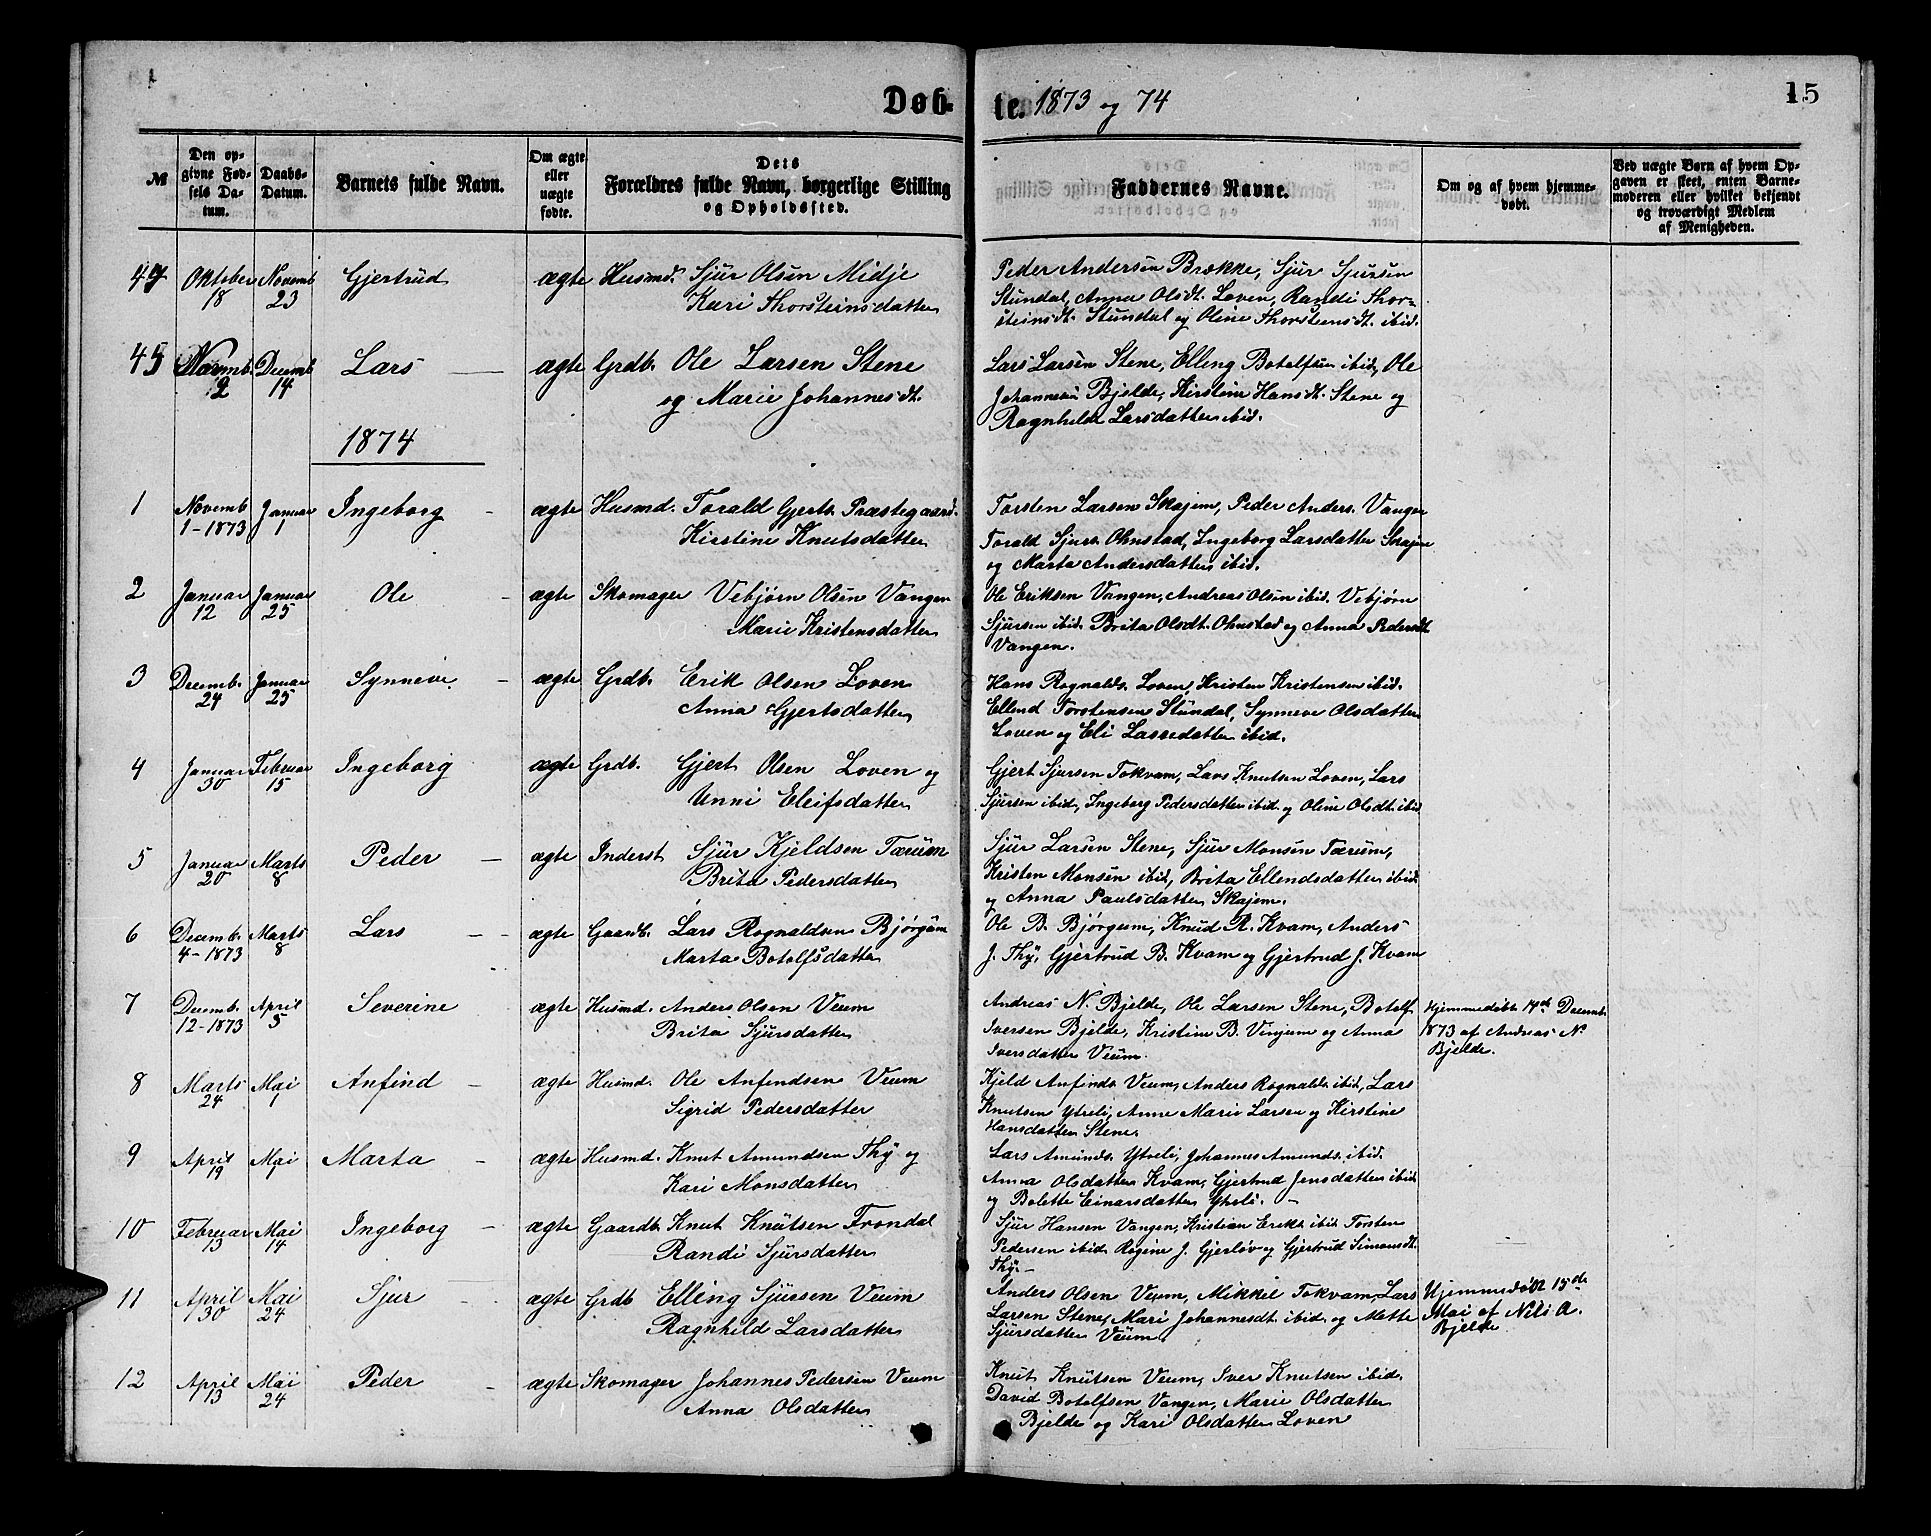 Døb- te. 1873 og 74
15
№
Den opgivne Fødsels Datum.
Daabs-Datum.
Barnets fulde Navn.
Om ægte eller uægte fødte.
Dets Forældres fulde Navn, borgerlige Stilling og Opholdssted.
Faddernes Navne.
Om og af hvem hjemmedøbt.
Ved uægte Børn af hvem Opgaven er skeet, enten Barnemoderen eller hvilket bekjendt og troværdigt Medlem af Menigheden.
44 Oktober 18 Novemb 23 Gjertrud ægte Husmd. Sjur Olsen Midje
Kari Thorsteinsdatter
Peder Andersen Brække, Sjur Sjursen
Stundal, Anna Olsdt. Loven, Randi Thor-
steinsdt. Stundal og Oline Thorsteinsdt. ibid.
45 Novmb. 2 Decemb 14 Lars ægte Grdb. Ole Larsen Stene
og Marie Johannesdt.
Lars Larsen Stene, Elling Botolfsen ibid, Ole
Johannesen Bjelde, Kirstine Hansdt. Stene og
Ragnhilde Larsdatter ibid.
1874
1 Novemb 1-1873 Januar 1 Ingeborg ægte Husmd. Torald Gjerts. Præstegaard.
Kirstine Knutsdatter
Torsten Larsen Skajem, Peder Anders. Vangen
Torald Sjurs. Ohnstad, Ingeborg Larsdatter Skajem
og Marta Andersdatter ibid.
2 Januar 12 Januar 25 Ole ægte Skomager Vebjørn Olsen Vangen
Marie Kristensdatter
Ole Eriksen Vangen, Andreas Olsen ibid. Vebjørn
Sjursen ibid. Brita Olsdt. Ohnstad og Anna Pedersdt
Vangen.
3 Decemb. 24 Januar 25 Synneve ægte Grdb. Erik Olsen Loven
Anna Gjertsdatter
Hans Rognalds. Loven, Kristen Kristensen ibid.
Ellend Torstensen Stundal, Synneve Olsdatter
Loven og Eli Lassedatter ibid.
4 Januar 30 Februar 15 Ingeborg ægte Grdb. Gjert Olsen Loven og
Unni Eleifsdatter
Gjert Sjursen Tokvam, Lars Knutsen Loven, Lars
Sjursen ibid, Ingeborg Pedersdatter ibid. og Oline Olsdt. ibid
5 Januar 20 Marts 8 Peder ægte Inderst Sjur Kjeldsen Tærum
Brita Pedersdatter
Sjur Larsen Stene, Sjur Monsen Tærum,
Kristen Monsen ibid, Brita Ellendsdatter ibid
og Anna Paulsdatter Skajem.
6 Decemb. 4-1873 Marts 8 Lars ægte Gaardb. Lars Rognaldsen Bjørgum
Marta Botolfsdatter
Ole B. Bjørgum, Knud R. Kvam, Anders
J. Thy, Gjertrud B. Kvam og Gjertrud J. Kvam
7 Decemb. 12-1873 April 5 Severine ægte Husmd. Anders Olsen Veum
Brita Sjursdatter
Andreas N. Bjelde, Ole Larsen Stene, Botolf
Iversen Bjelde, Kristine B. Vinjum og Anna
Iversdatter Veum.
Hjemmedøbt 14de Decemb.
1873 af Andreas N.
Bjelde.
8 Marts 24 Mai 1 Anfind ægte Husmd. Ole Anfendsen Veum
Sigrid Pedersdatter
Kjeld Anfinds. Veum, Anders Rognalds. ibid, Lars
Knutsen Ytreli, Anne Marie Larsen og Kirstine
Hansdatter Stene.
9 April 19 Mai 1 Marta ægte Husmd. Knut Amundsen Thy og
Kari Monsdatter
Lars Amunds. Ytreli, Johannes Amunds. ibid.
Anna Olsdatter Kvam, Gjertrud Jensdatter ibid
og Bolette Einarsdatter Ytreli.
10 Februar 13 Mai 14 Ingeborg ægte Gaardb. Knut Knutsen Frondal
Randi Sjursdatter
Sjur Hansen Vangen, Kristian Eriks. ibid Torsten
Pedersen ibid. Regine J. Gjerløv og Gjertrud Simonsdt.
Thy.
11 April 30 Mai 24 Sjur ægte Grdb Elling Sjursen Veum
Ragnhild Larsdatter
Anders Olsen Veum, Mikkel Tokvam, Lars
Larsen Stene, Mari Johannesdt. ibid. og Mette
Sjursdatter Veum.
Hjemmedøbt 15de
Mai af Nils A.
Bjelde
12 April 13 Mai 24 Peder ægte Skomager Johannes Pedersen Veum
Anna Olsdatter
Knut Knutsen Veum, Iver Knutsen ibid.
David Botolfsen Vangen, Marie Olsdatter
Bjelde og Kari Olsdatter Loven